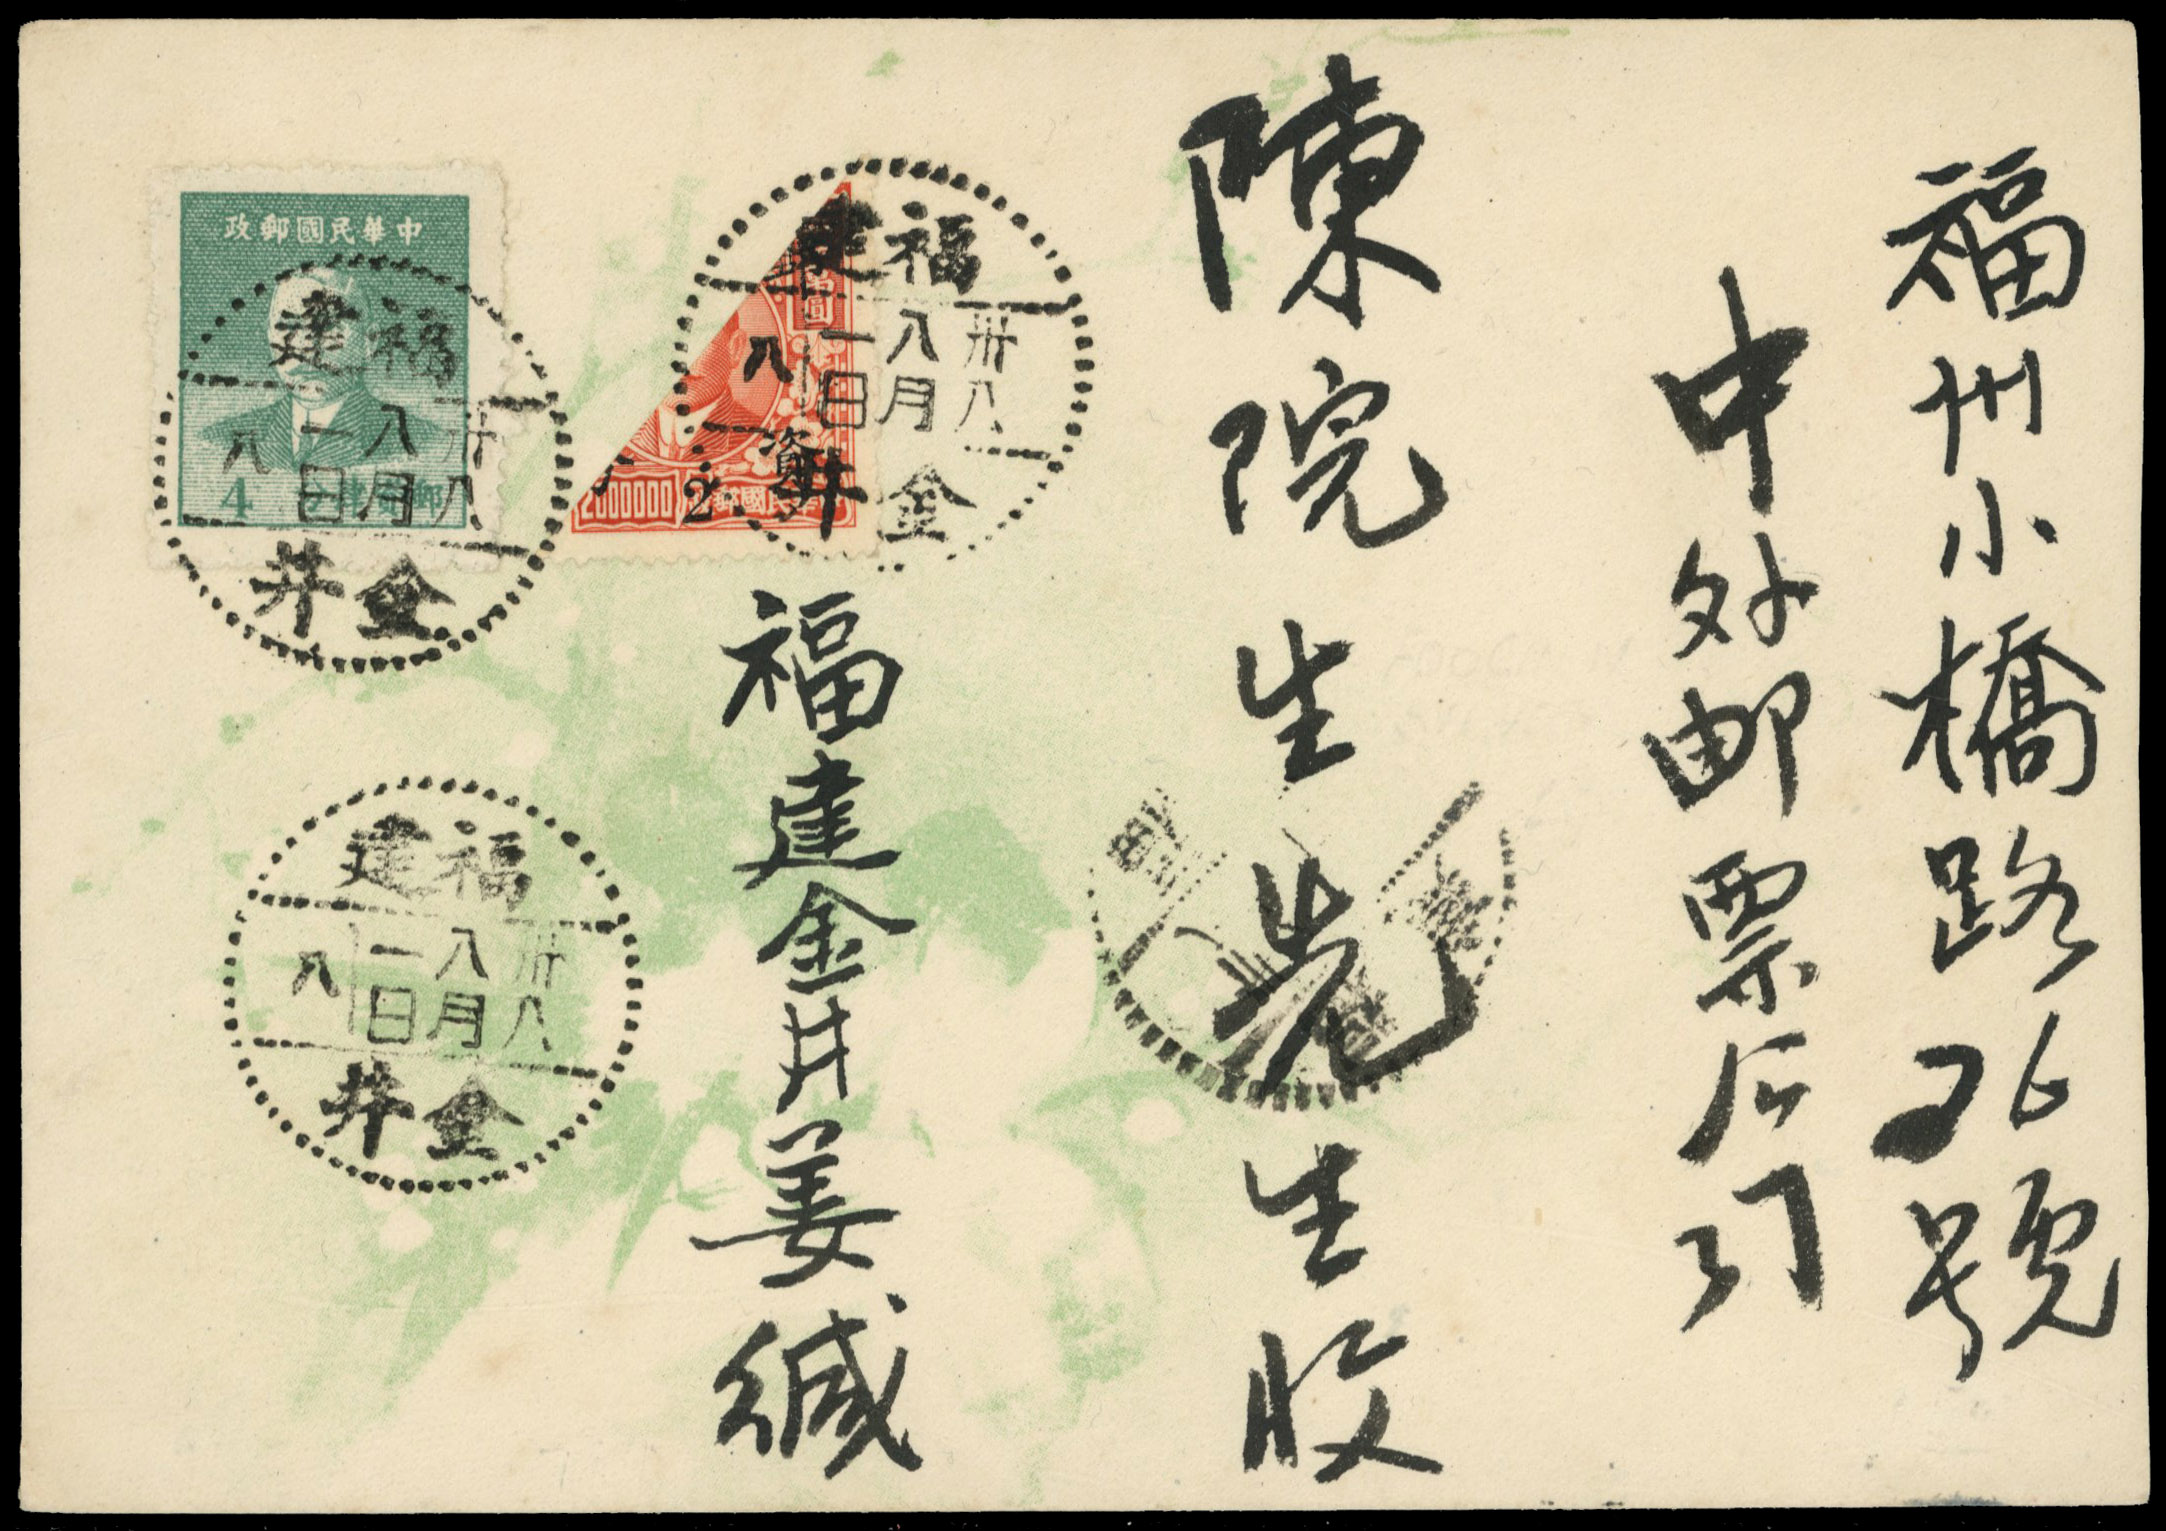 福州小橋路26號
中外邮票后门
陳院生先生收
福建金井姜緘
中華民國郵政
4
福建
卅八
八月
一日
八
金井
圓
2000000
中華民國郵
資
2
福建
卅八
八月
一日
八
金井
福建
卅八
八月
一日
八
金井